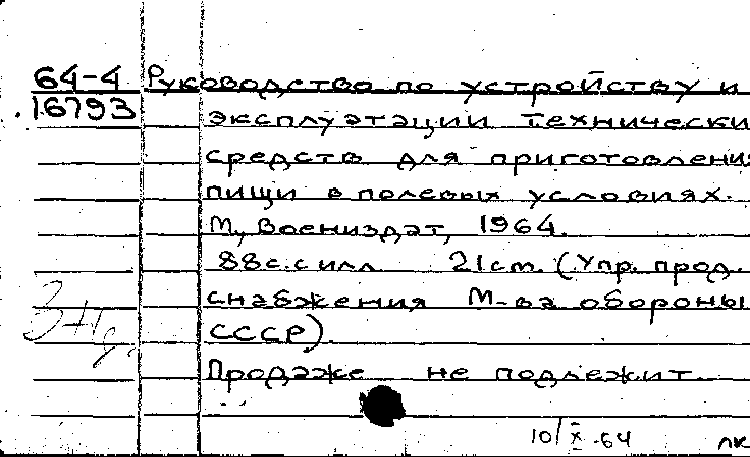 64-4 Руководство по устройству и
16793 эксплуатации технически
средств для приготовлени
пищи в полевых условиях.
М, Воениздат, 1964.
88с.с илл 21ст. (Упр. прод.
снабжения М-ва обороны
СССР).
Продаже не подлежит.
10/X-64 лк